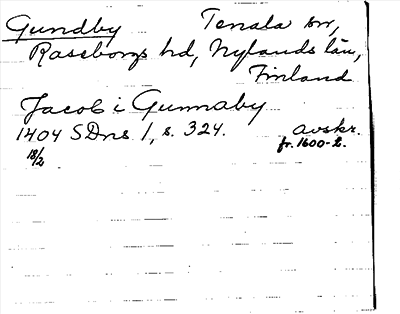 Gundby Tenala sn,
Raseborgs hd, Nylands län,
Finland
Jacob i Gunnaby
1404 SDns 1, s. 324. avskr.
18/2 fr. 1600-t.